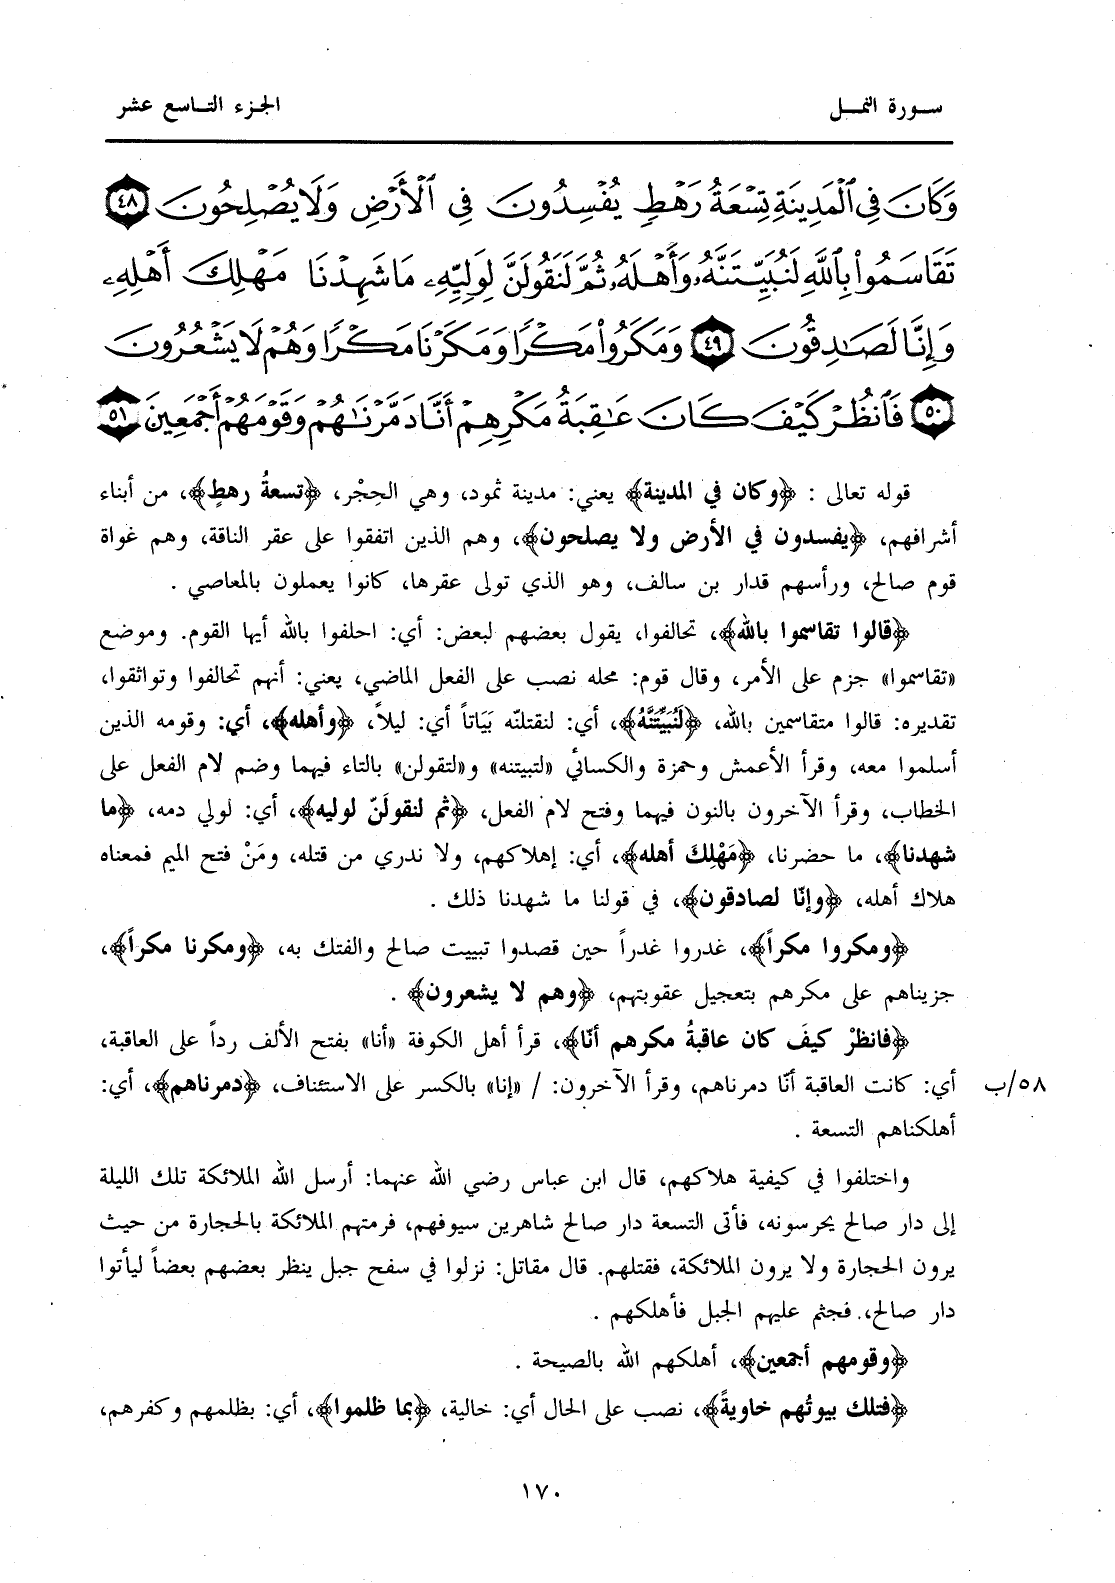 سورة النمل
الجزء التاسع عشر
وَكَانَ فِي ٱلْمَدِينَةِ تِسْعَةُ رَهْطٍ يُفْسِدُونَ فِي ٱلْأَرْضِ وَلَا يُصْلِحُونَ ٤٨
تَقَاسَمُوا۟ بِٱللَّهِ لَنُبَيِّتَنَّهُۥ وَأَهْلَهُۥ ثُمَّ لَنَقُولَنَّ لِوَلِيِّهِۦ مَا شَهِدْنَا مَهْلِكَ أَهْلِهِۦ
وَإِنَّا لَصَٰدِقُونَ ٤٩ وَمَكَرُوا۟ مَكْرًا وَمَكَرْنَا مَكْرًا وَهُمْ لَا يَشْعُرُونَ
٥٠ فَٱنظُرْ كَيْفَ كَانَ عَٰقِبَةُ مَكْرِهِمْ أَنَّا دَمَّرْنَٰهُمْ وَقَوْمَهُمْ أَجْمَعِينَ ٥١
قوله تعالى : ﴿وكان في المدينة﴾ يعني: مدينة ثمود، وهي الحِجْر، ﴿تسعةُ رهطٍ﴾، من أبناء
أشرافهم، ﴿يفسدون في الأرض ولا يصلحون﴾، وهم الذين اتفقوا على عقر الناقة، وهم غواة
قوم صالح، ورأسهم قدار بن سالف، وهو الذي تولى عقرها، كانوا يعملون بالمعاصي .
﴿قالوا تقاسموا بالله﴾، تحالفوا، يقول بعضهم لبعض: أي: احلفوا بالله أيها القوم. وموضع
«تقاسموا» جزم على الأمر، وقال قوم: محله نصب على الفعل الماضي، يعني: أنهم تحالفوا وتواثقوا،
تقديره: قالوا متقاسمين بالله، ﴿لَنُبَيِّتَنَّهُ﴾، أي: لنقتلنّه بَيَاتاً أي: ليلاً، ﴿وأهله﴾، أي: وقومه الذين
أسلموا معه، وقرأ الأعمش وحمزة والكسائي «لتبيتنه» و«لتقولن» بالتاء فيهما وضم لام الفعل على
الخطاب، وقرأ الآخرون بالنون فيهما وفتح لام الفعل، ﴿ثم لنقولَنّ لوليه﴾، أي: لولي دمه، ﴿ما
شهدنا﴾، ما حضرنا، ﴿مَهْلِكَ أهله﴾، أي: إهلاكهم، ولا ندري من قتله، ومَنْ فتح الميم فمعناه
هلاك أهله، ﴿وإنّا لصادقون﴾، في قولنا ما شهدنا ذلك .
﴿ومكروا مكراً﴾، غدروا غدراً حين قصدوا تبييت صالح والفتك به، ﴿ومكرنا مكراً﴾،
جزيناهم على مكرهم بتعجيل عقوبتهم، ﴿وهم لا يشعرون﴾ .
﴿فانظرْ كيفَ كان عاقبةُ مكرهم أنّا﴾، قرأ أهل الكوفة «أنا» بفتح الألف رداً على العاقبة،
٥٨/ب أي: كانت العاقبة أنّا دمرناهم، وقرأ الآخرون: / «إنا» بالكسر على الاستئناف، ﴿دمرناهم﴾، أي:
أهلكناهم التسعة .
واختلفوا في كيفية هلاكهم، قال ابن عباس رضي الله عنهما: أرسل الله الملائكة تلك الليلة
إلى دار صالح يحرسونه، فأتى التسعة دار صالح شاهرين سيوفهم، فرمتهم الملائكة بالحجارة من حيث
يرون الحجارة ولا يرون الملائكة، فقتلهم. قال مقاتل: نزلوا في سفح جبل ينظر بعضهم بعضاً ليأتوا
دار صالح، فجثم عليهم الجبل فأهلكهم .
﴿وقومهم أجمعين﴾، أهلكهم الله بالصيحة .
﴿فتلك بيوتُهم خاويةً﴾، نصب على الحال أي: خالية، ﴿بما ظلموا﴾، أي: بظلمهم وكفرهم،
١٧٠